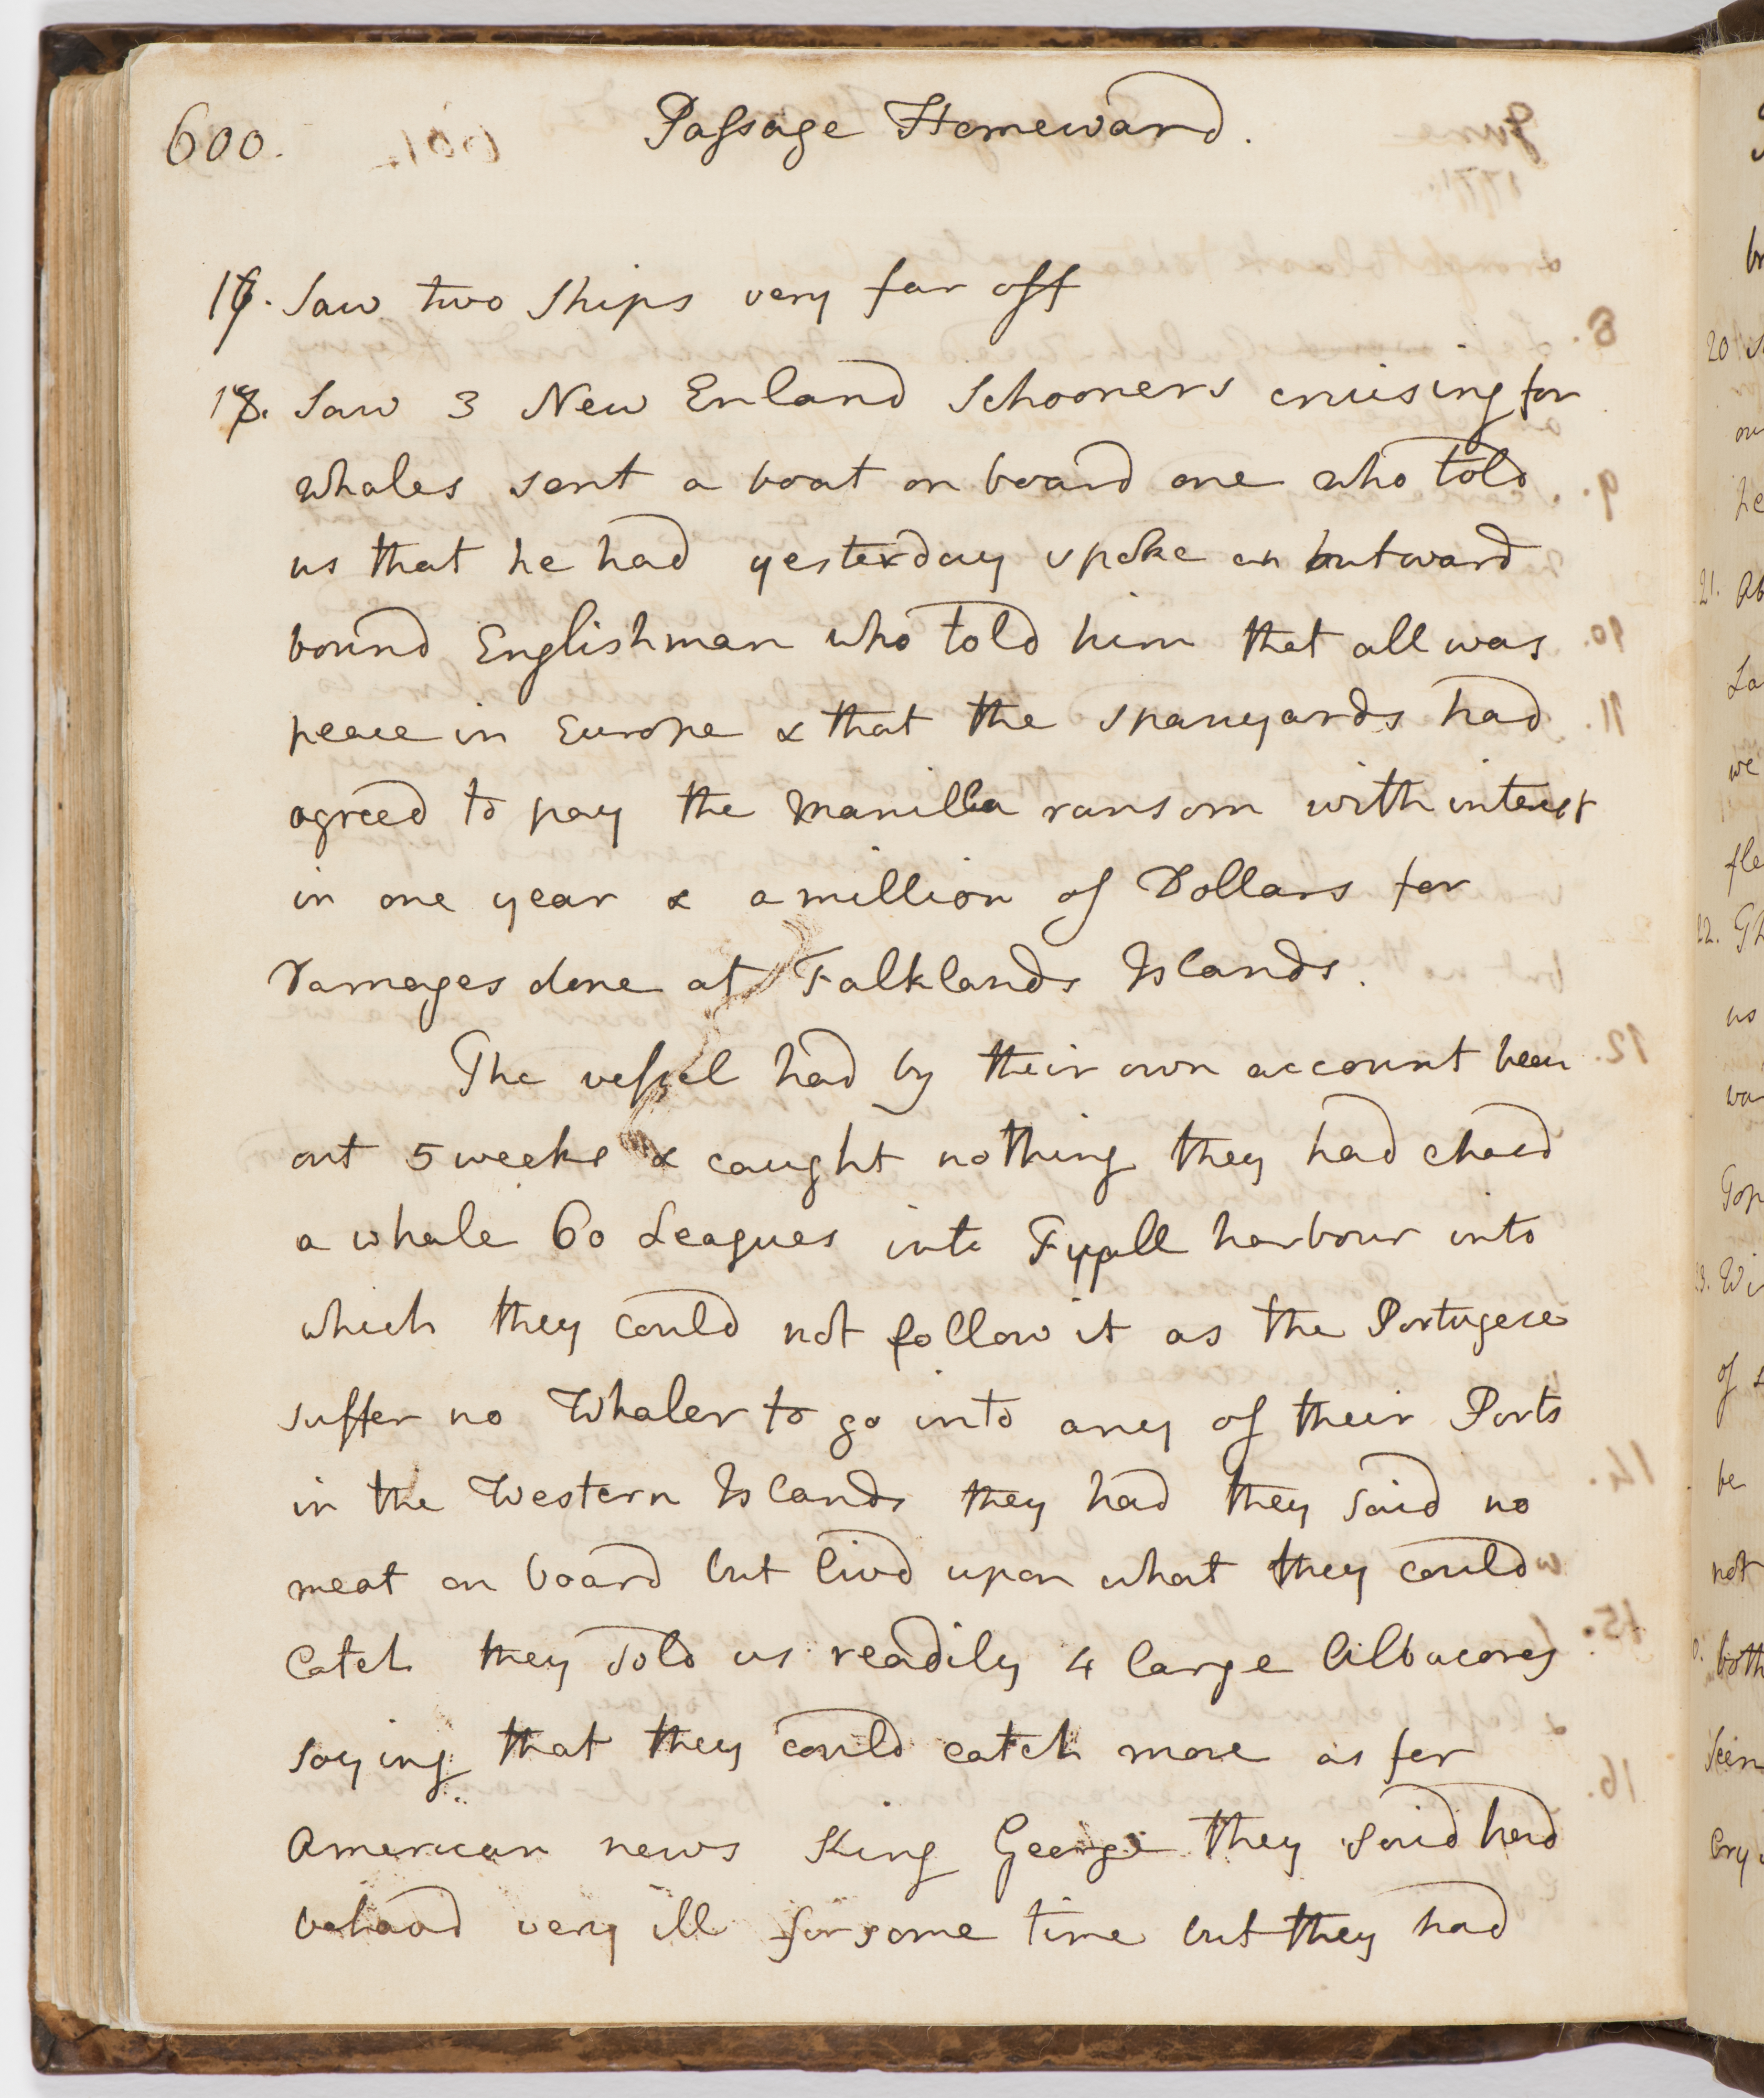 600.
Passage Homeward.
Saw two Ships very far off
Saw 3 New Enland Schooners cruising for
whales sent a boat on board one who told
us that he had yesterday spoke an outward
bound Englishman who told him that all was
peace in Europe & that the Spanyards had
agreed to pay the Manilla ransom with interest
in one year & a million of Dollars for
Damages done at Falklands Islands.
The vessel had by their own account been
out 5 weeks & caught nothing they had chasd
a whale 60 Leagues into Fyall harbour into
which they could not follow it as the Portugese
suffer no Whaler to go into any of their Ports
in the Western Islands they had they said no
meat on board but livd upon what they could
catch they sold us readily 4 large Albacores
saying that they could catch more as for
American news King George they said had
behavd very ill for some time but they had